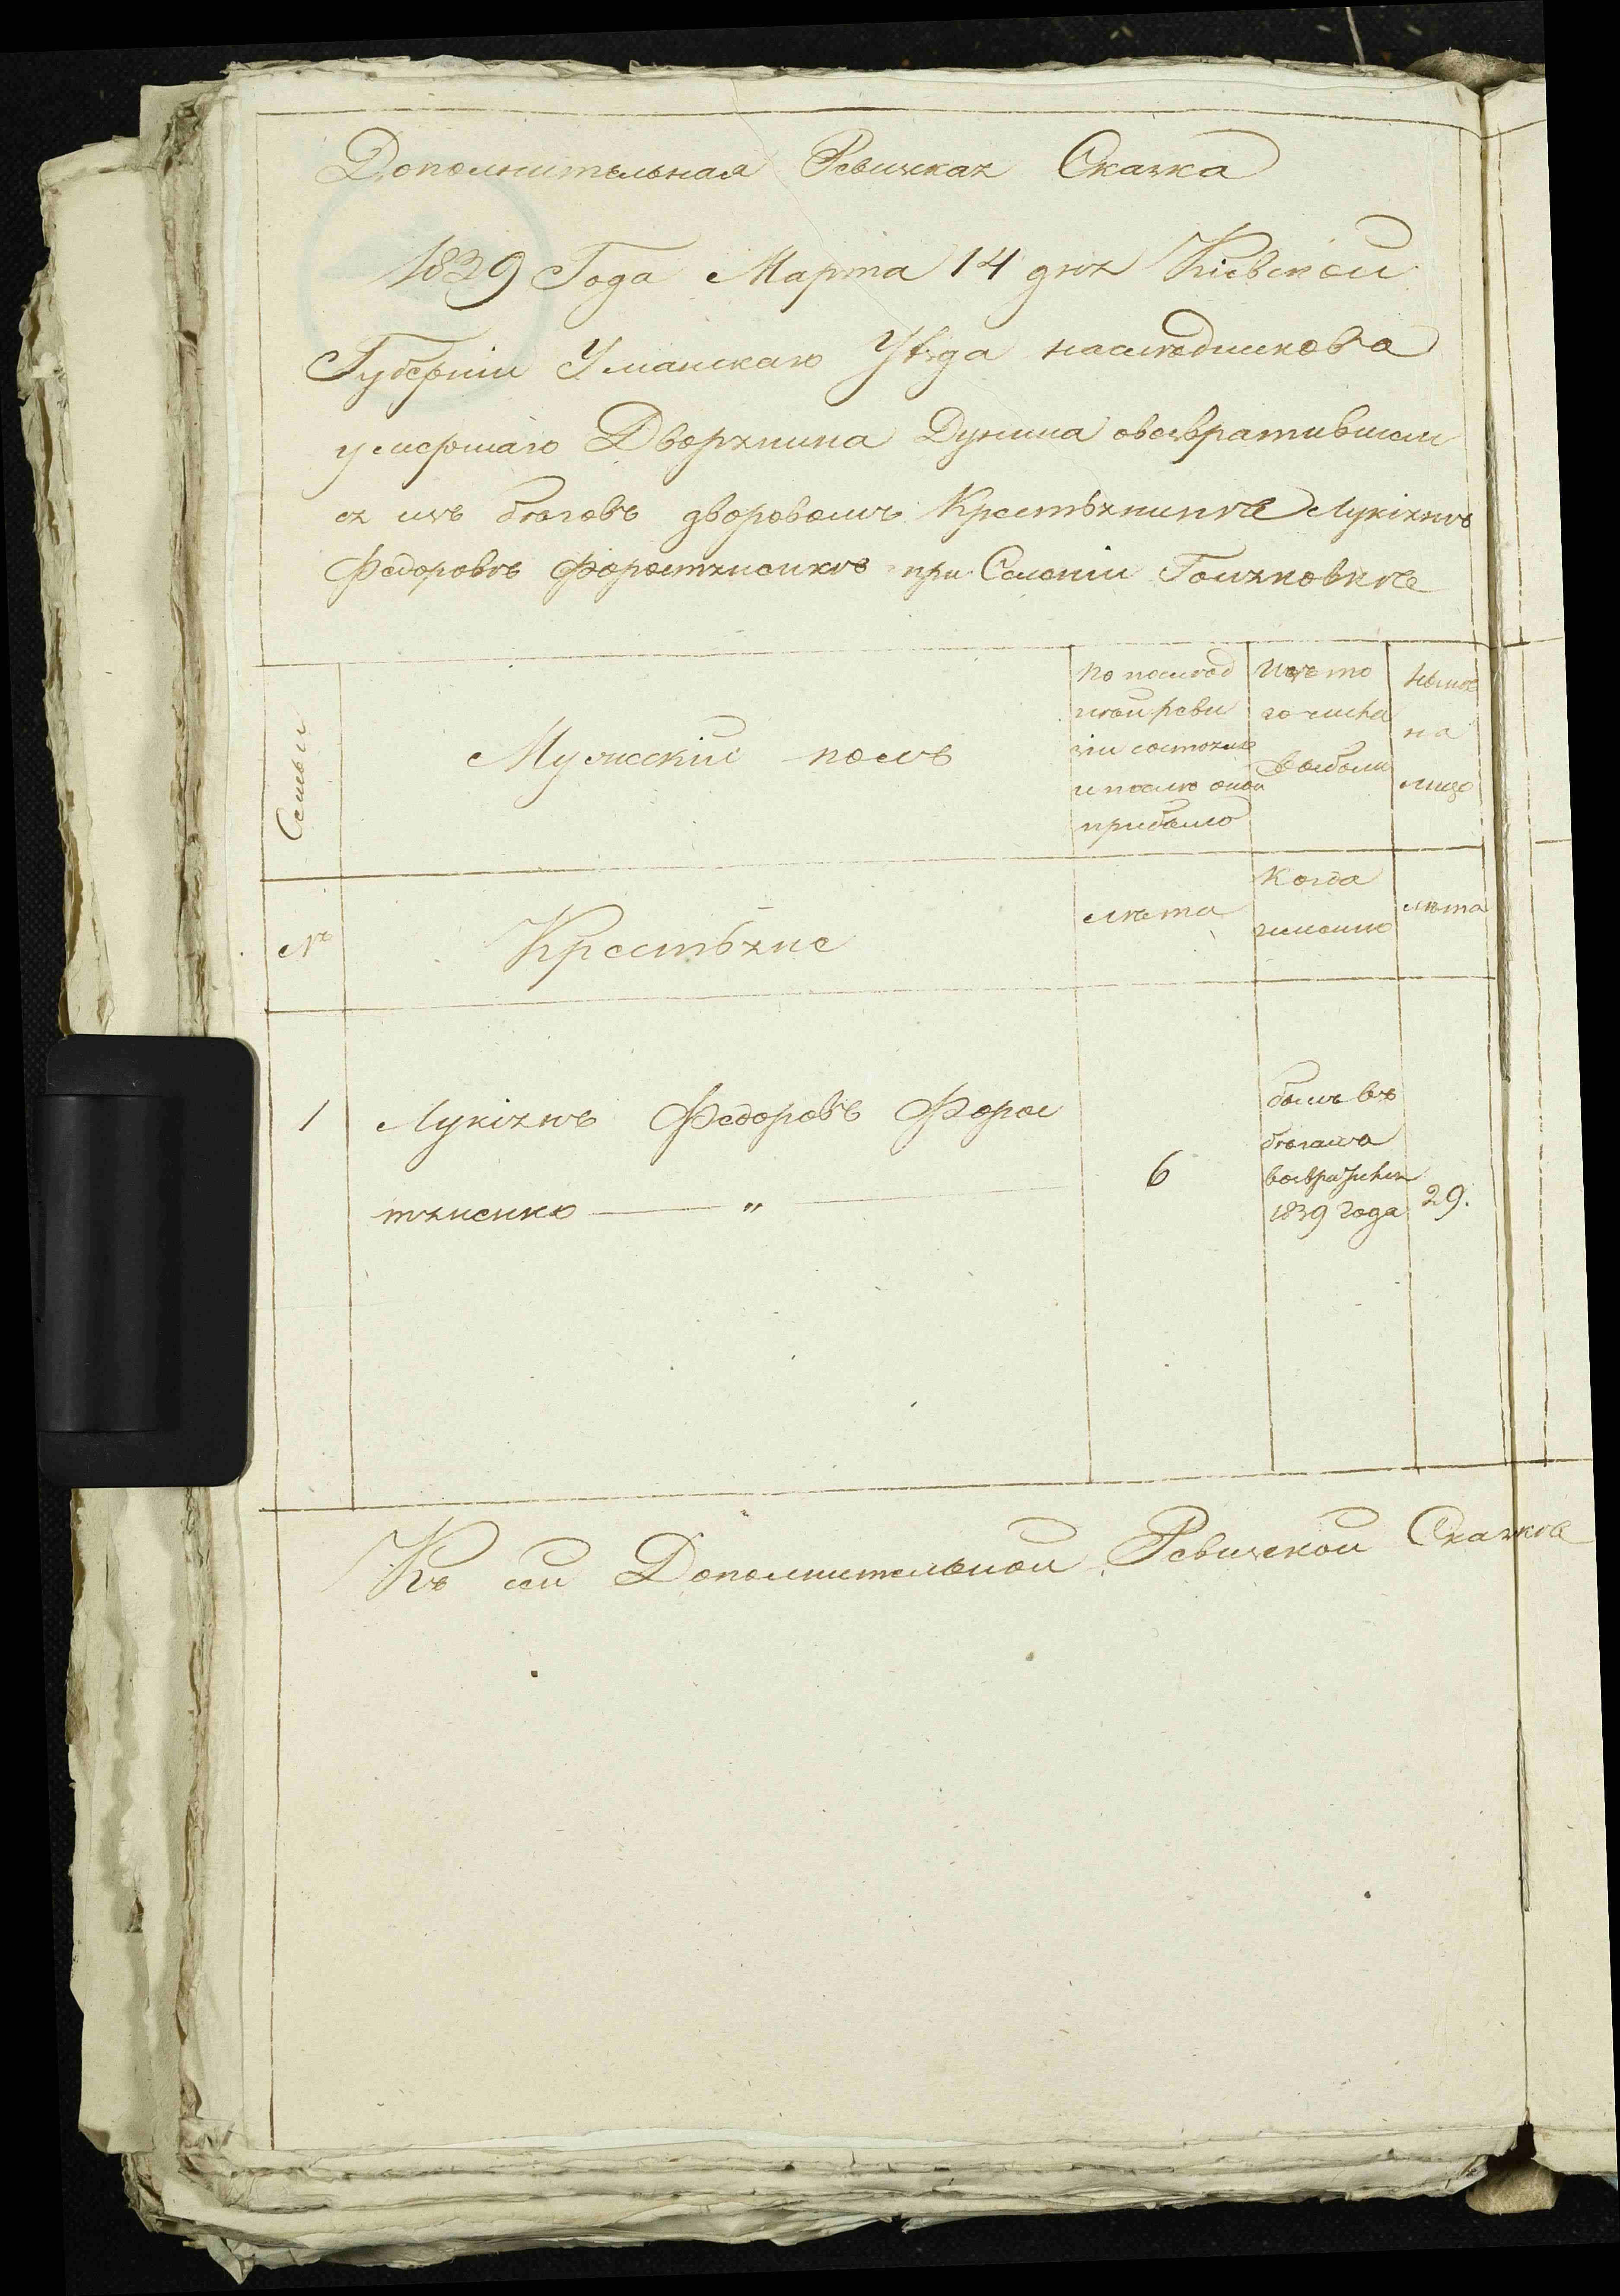 Дополнительная Ревизская Сказка
1839 Года Марта 14 дня Кіевской
Губерніи Уманскаго Уѣзда наслѣдникова
умершаго Дворянина Дунина овозвратившем
ся изъ бѣговъ дворовомъ Крестьянинѣ Лукіянѣ
Федоровѣ Форостяненкѣ при Селеніи
Семьи
Мужескій полъ
По послѣд
ней реви
зіи состояло
и послѣ оной
прибыло
Изъ то
го числа
выбыло
Нынѣ
на
лицо
№
Крестьяне
лѣта
Когда
именно
лѣта
1
Лукіянъ Федоровъ Форос
тяненко — " —
6
былъ въ
бѣгахъ
возвратился
1839 Года
29.
Къ сей Дополнительной Ревизской Сказкѣ